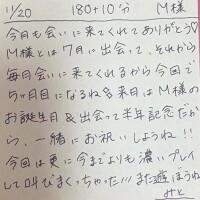 11/20 180+10分 M様
今月も会いに来てくれてありがとう♡
M様とは7月に出会って、それから
毎月会いに来てくれるから今回で
5ヶ月目になるね&来月はM様の
お誕生日&出会って半年記念だか
ら、一緒にお祝いしようね!!
今回は更に今までよりも濃いプレイ
して叫びまくっちゃった!!!また遊ぼうね
みと